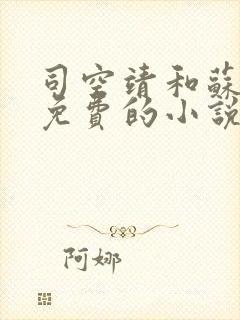 司空靖和蘇
免費的小說
阿娜